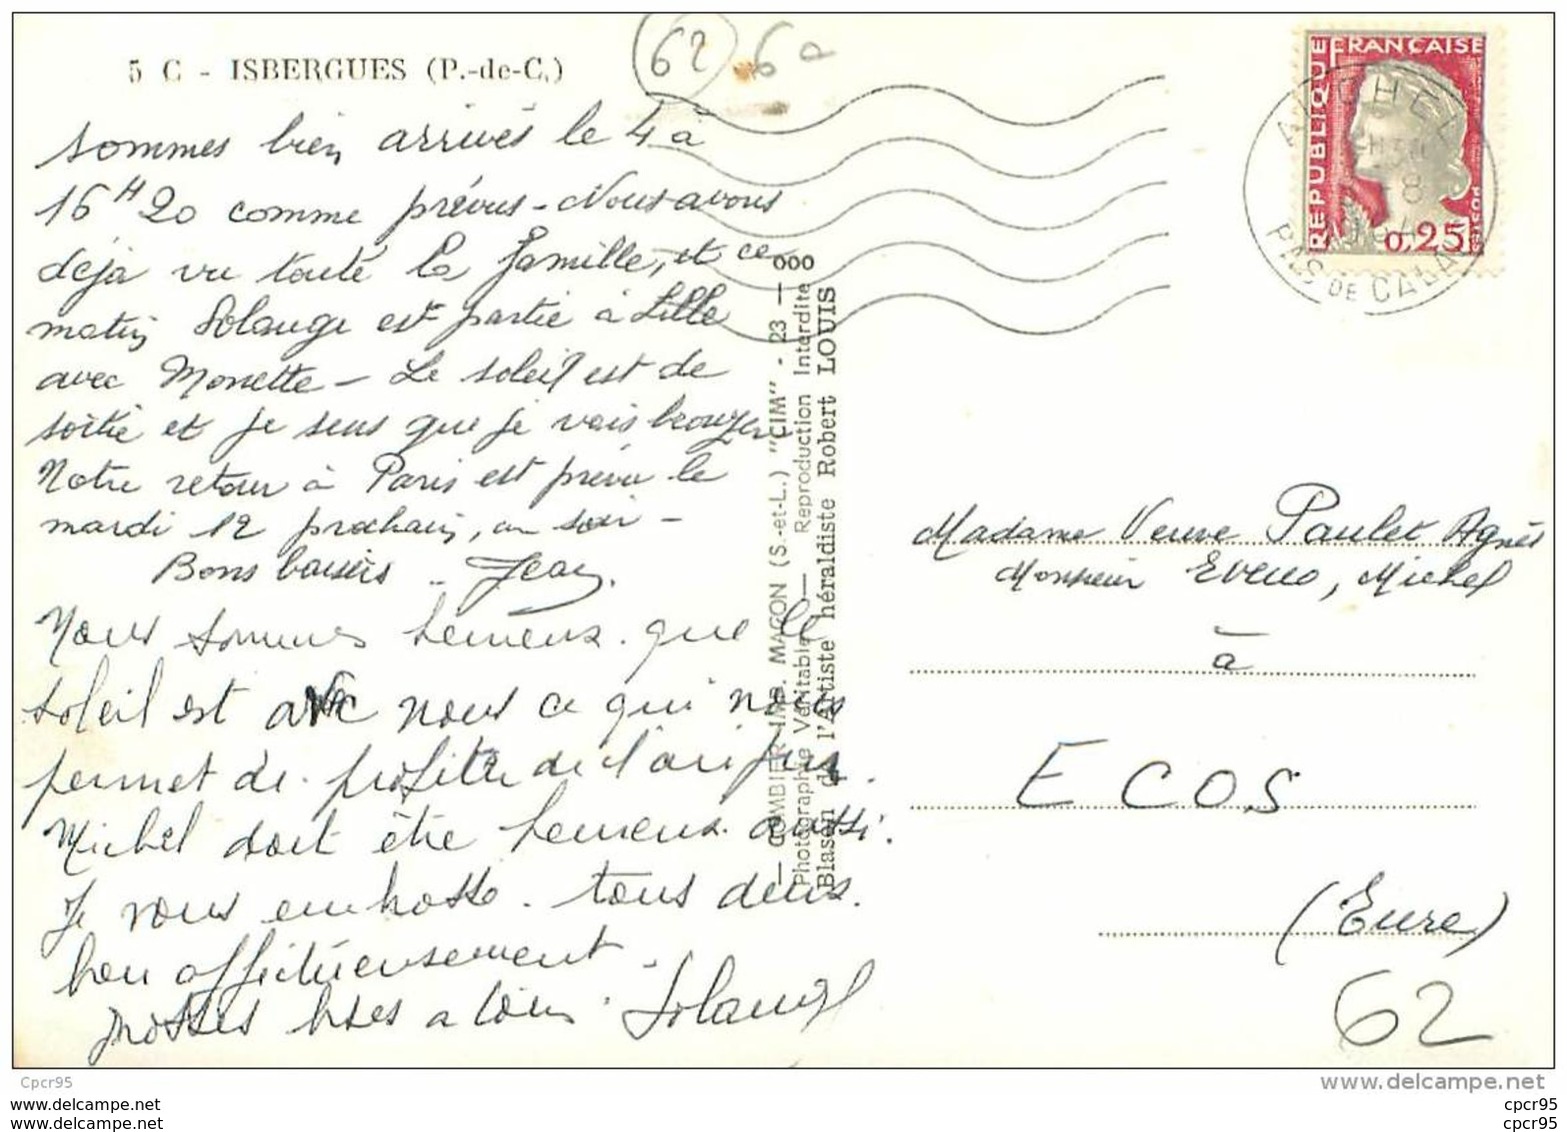 5 C - ISBERGUES (P.-de-C.)
62
sommes bien arrivés le 4 à
16 H 20 comme prévus - Nous avons
déjà vu toute la famille, et ce
matin Solange est partie à Lille
avec Monette - Le soleil est de
sortie et je sens que je vais bronzer
Notre retour à Paris est prévu le
mardi 12 prochain, au soir -
Bons baisers - Jean.
Nous sommes heureux que le
soleil est avec nous ce qui nous
permet de profiter de l'air pur.
Michel doit être heureux aussi.
Je vous embrasse tous deux.
bien affectueusement -
grosses bises a tous. Solange
— COMBIER IMP. MACON (S.-et-L.) "CIM" - 23 — ooo
Photographie Véritable — Reproduction Interdite
Blason de l'Artiste héraldiste Robert LOUIS
REPUBLIQUE FRANÇAISE
POSTES
0,25
PAS DE CALAIS
Madame Veuve Paulet Agnès
Monsieur Michel
à
ECOS
(Eure)
62
Cpcr95
www.delcampe.net
cpcr95
cpcr95
cpcr95
cpcr95